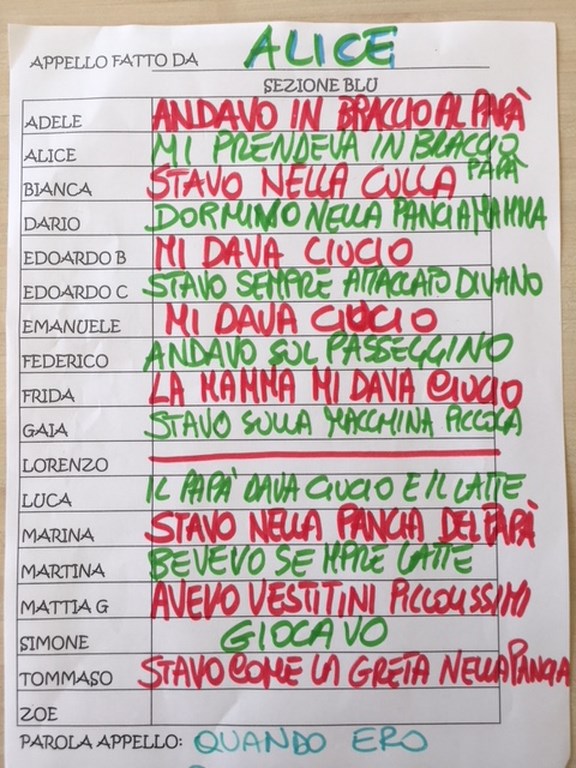 APPELLO FATTO DA ALICE
SEZIONE BLU
ADELE ANDAVO IN BRACCIO AL PAPÀ
ALICE MI PRENDEVA IN BRACCIO PAPÀ
BIANCA STAVO NELLA CULLA
DARIO DORMIVO NELLA PANCIA MAMMA
EDOARDO B MI DAVA CIUCIO
EDOARDO C STAVO SEMPRE ATTACCATO DIVANO
EMANUELE MI DAVA CIUCIO
FEDERICO ANDAVO SUL PASSEGGINO
FRIDA LA MAMMA MI DAVA CIUCIO
GAIA STAVO SULLA MACCHINA PICCOLA
LORENZO
LUCA IL PAPÀ DAVA CIUCIO E IL LATTE
MARINA STAVO NELLA PANCIA DEL PAPÀ
MARTINA BEVEVO SEMPRE LATTE
MATTIA G AVEVO VESTITINI PICCOLISSIMI
SIMONE GIOCAVO
TOMMASO STAVO COME LA GRETA NELLA PANCIA
ZOE
PAROLA APPELLO: QUANDO ERO